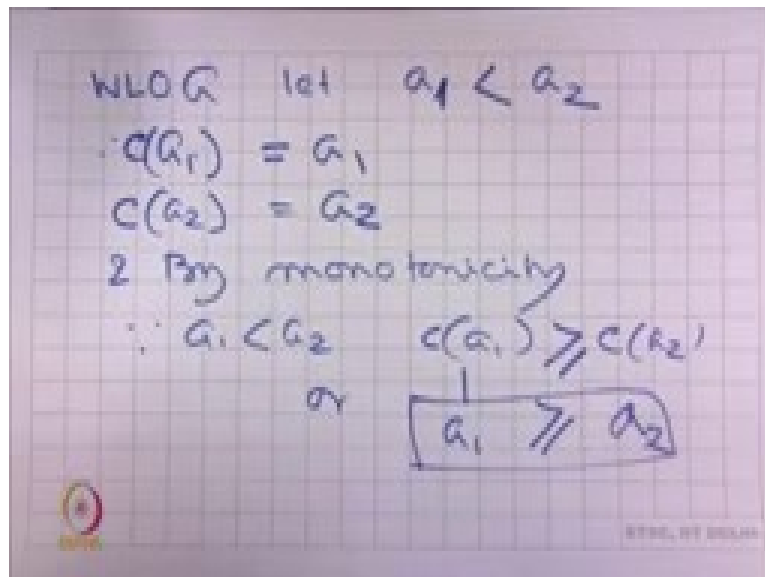 WLOG let a₁ < a₂
∵ C(a₁) = a₁
C(a₂) = a₂
2 By monotonicity
∵ a₁ < a₂ C(a₁) ⩾ C(a₂)
or a₁ ⩾ a₂